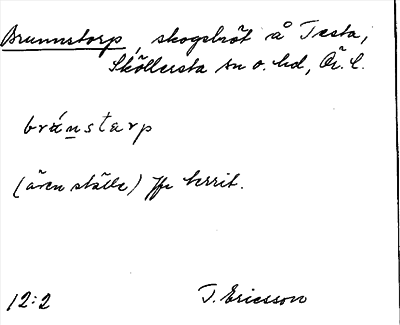 Brunnstorp, skogsbröt å Testa,
Sköllersta sn o. hd, Ör. l.
bránstarp
(även ställe) Jfr herrit.
12:2
J. Ericsson